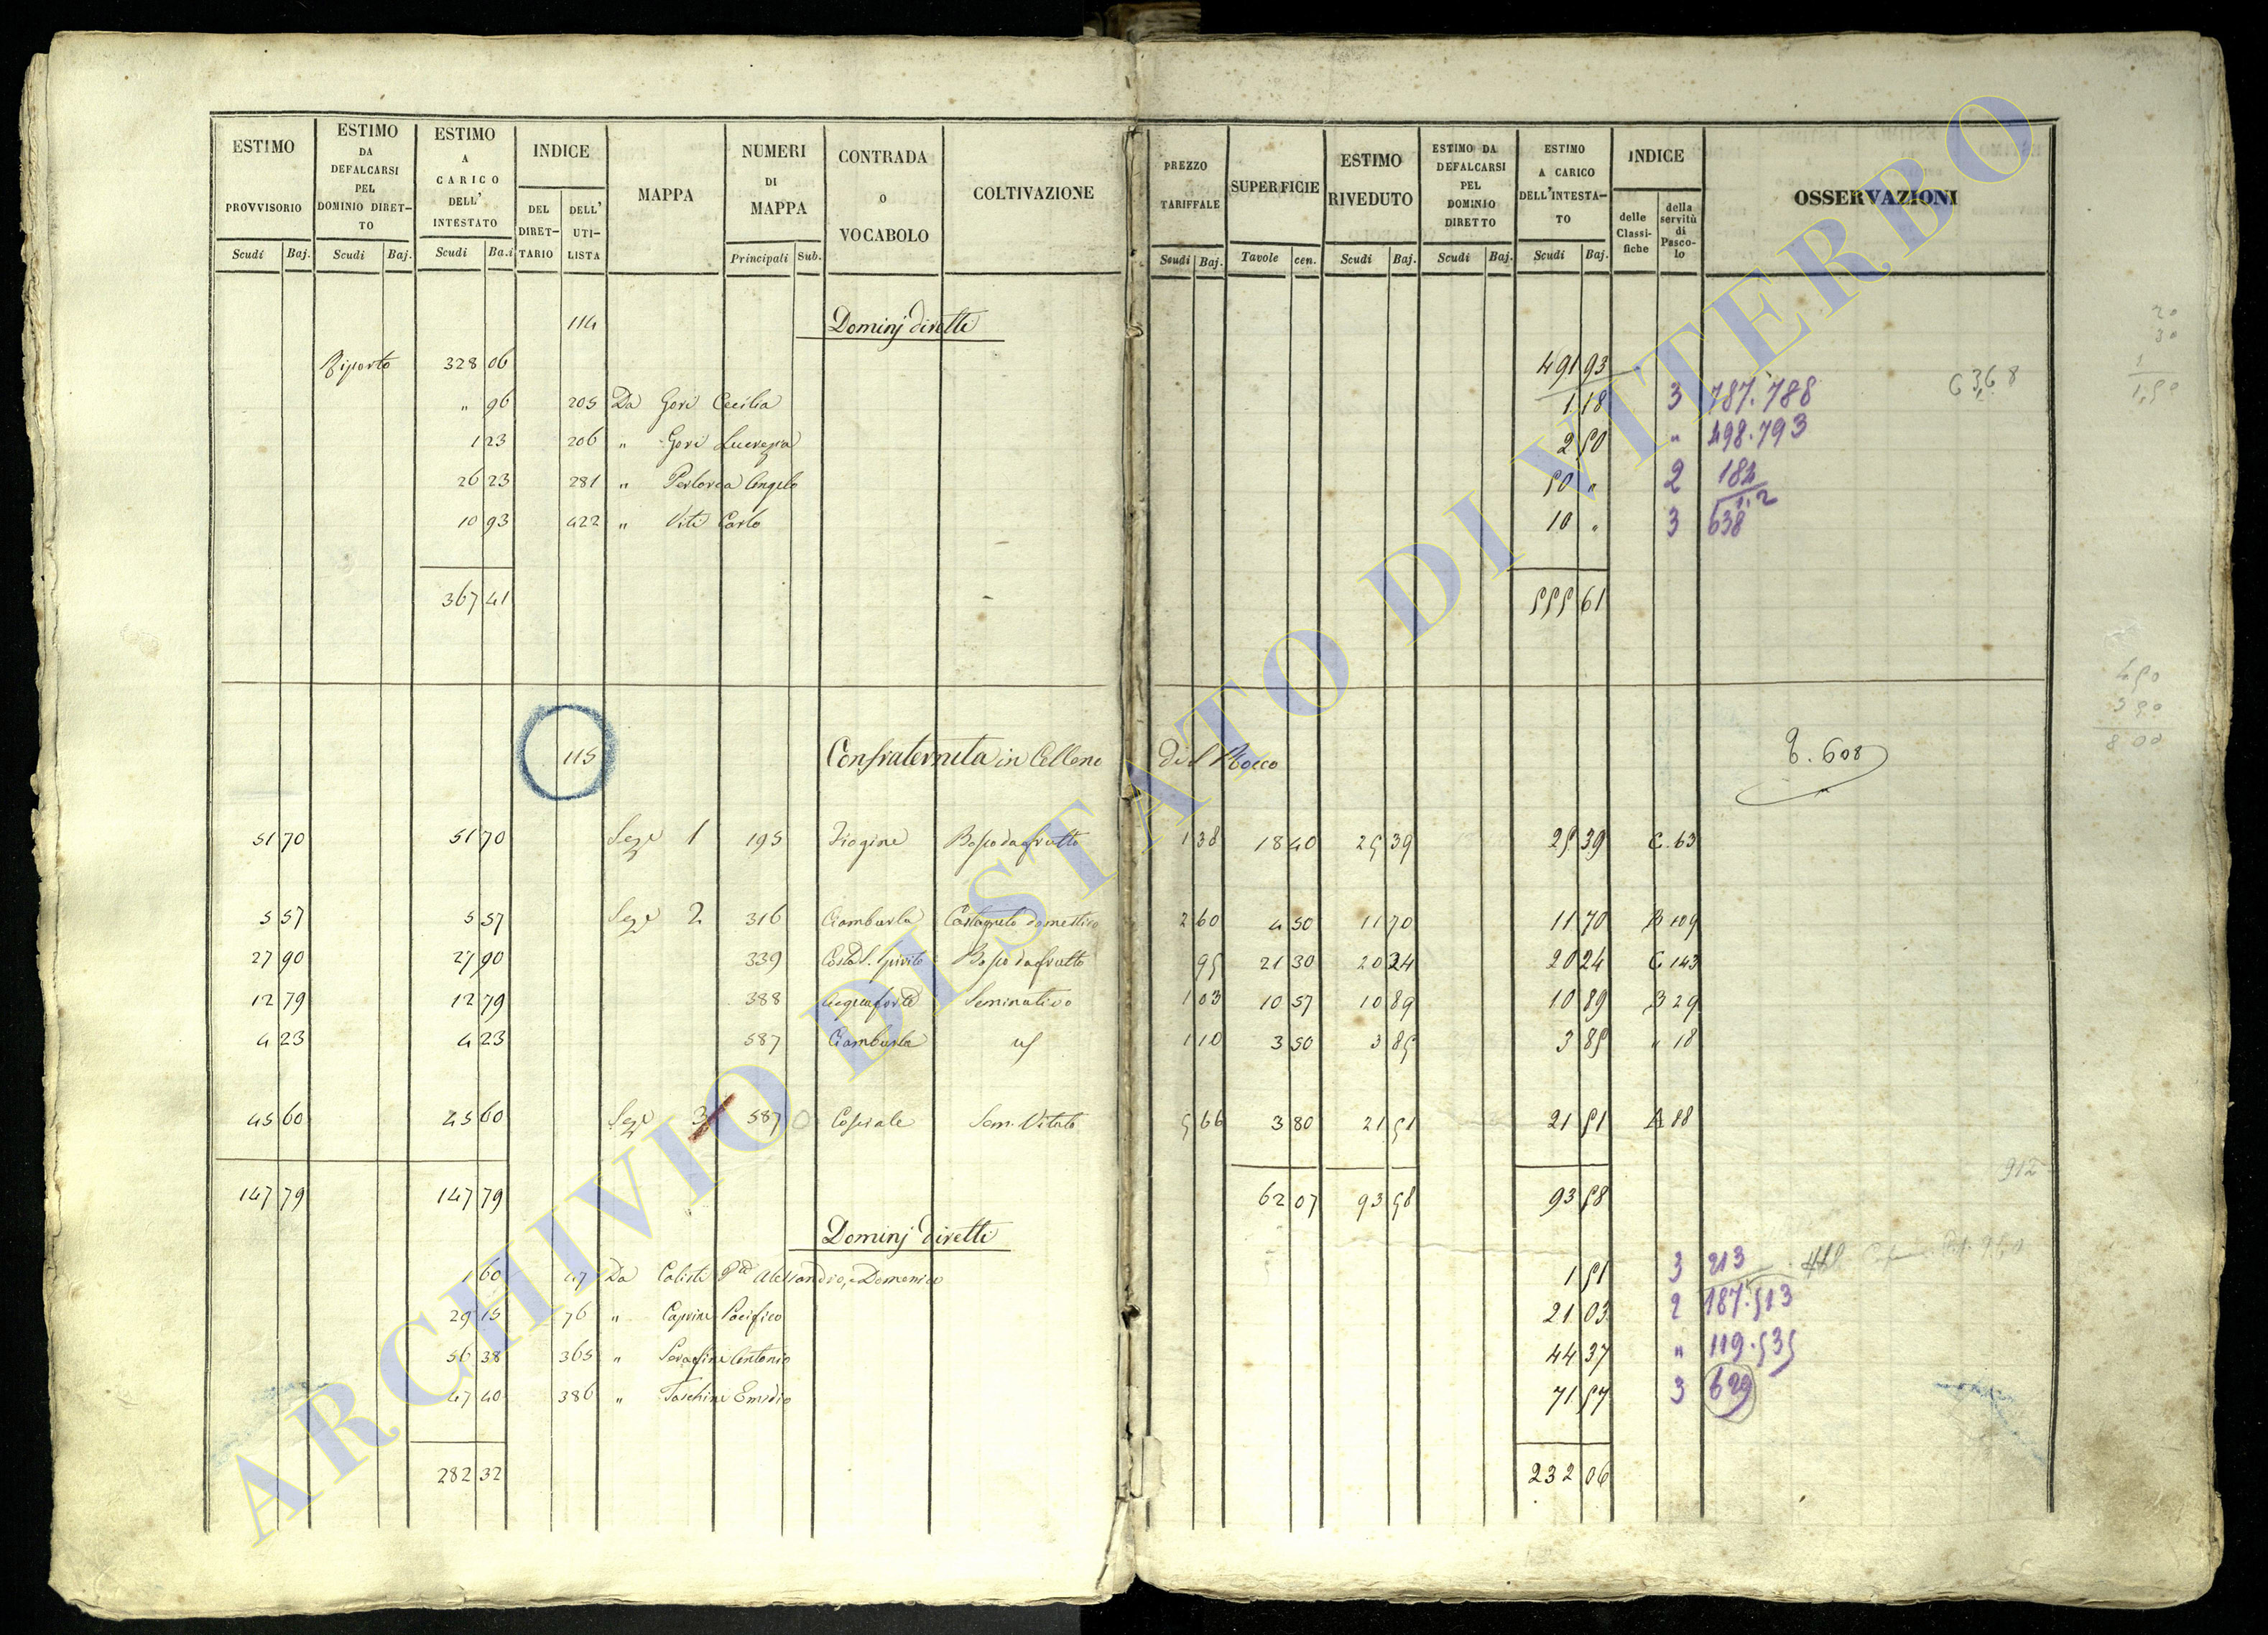 ESTIMO PROVVISORIO Scudi Baj.
ESTIMO DA DEFALCARSI PEL DOMINIO DIRET-TO Scudi Baj.
ESTIMO A CARICO DELL' INTESTATO Scudi Ba.i
INDICE DEL DIRET-TARIO DELL' UTI-LISTA
MAPPA
NUMERI DI MAPPA Principali Sub.
CONTRADA O VOCABOLO
COLTIVAZIONE
PREZZO TARIFFALE Scudi Baj.
SUPERFICIE Tavole cen.
ESTIMO RIVEDUTO Scudi Baj.
ESTIMO DA DEFALCARSI PEL DOMINIO DIRETTO Scudi Baj.
ESTIMO A CARICO DELL'INTESTA-TO Scudi Baj.
INDICE delle Classi-fiche della servitù di Pasco-lo
OSSERVAZIONI
114 Dominj diretti
Riporto 328 06 491 93
" 96 205 Da Gori Cecilia 1 18 3 787. 788
1 23 206 " Gori Lucrezia 2 50 " 498. 793
26 23 281 " Perlorca Angelo 50 " 2 184 1.2
10 93 422 " Viti Carlo 10 " 3 638
367 41 555 61
115 Confraternita in Celleno di S Rocco 608
51 70 51 70 Seze 1 195 Bosco da frutto 1 38 18 40 25 39 25 39 C. 63
5 57 5 57 Seze 2 316 Ciamburla Castagneto domestico 2 60 4 50 11 70 11 70 B 109
27 90 27 90 339 Costa S. Spirito Bosco da frutto 95 21 30 20 24 20 24 C 143
12 79 12 79 388 Acquaforte Seminativo 1 03 10 57 10 89 10 89 B 29
4 23 4 23 587 Ciamburla 1 10 3 50 3 85 3 85 " 18
45 60 45 60 Seze 3 587 Sem. Vitato 5 66 3 80 21 51 21 51 A 88
912
147 79 147 79 62 07 93 58 93 58
Dominj diretti
1 60 47 Da Calisti Alessandro, e Domenico 1 51 3 213
29 15 76 " Caprini Pacifico 21 03 2 187. 513
56 38 365 " Serafini Antonio 44 37 " 119. 535
47 40 386 " Taschini Emidio 71 57 3 629
282 32 232 06
20
30
1
450
350
800
ARCHIVIO DI STATO DI VITERBO